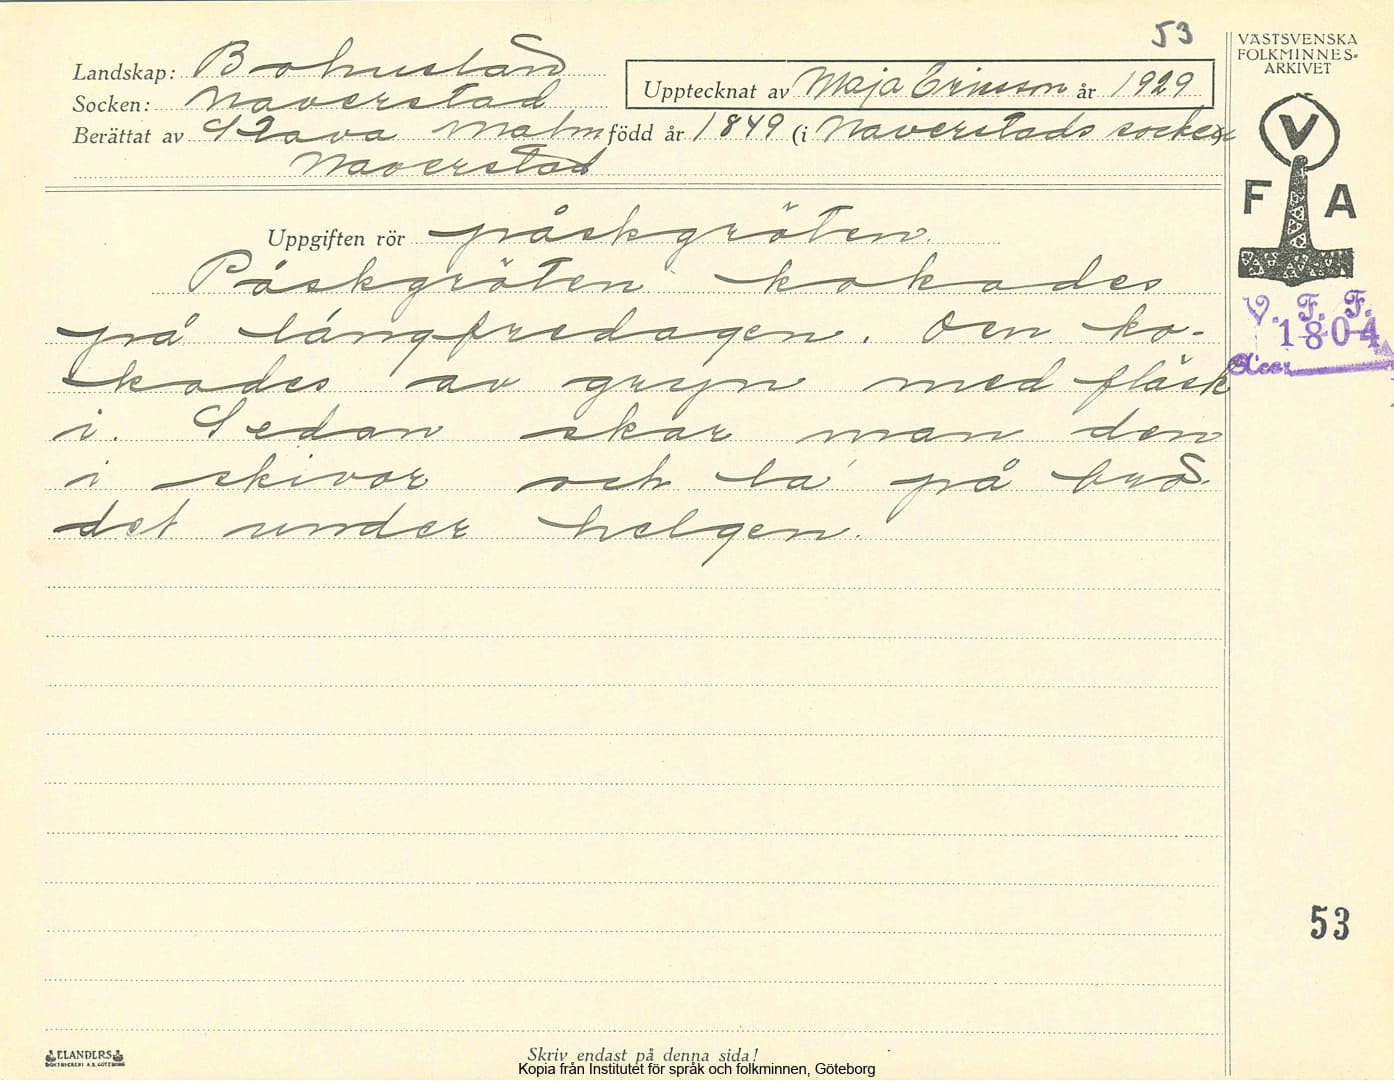 53
VÄSTSVENSKA
FOLKMINNES-
ARKIVET
Landskap: Bohuslän
Socken: Naverstad
Upptecknat av Maja Ericsson år 1929
Berättat av Stava Malm född år 1849 (i Naverstads socken)
Naverstad
V
F A
Uppgiften rör påskgröten.
Påskgröten kokades
på långfredagen. Den ko-
kades av gryn med fläsk
i. Sedan skar man den
i skivor och la' på brö-
det under helgen.
V. F. F.
1804
53
ELANDERS
BOKTRYCKERI A.B. GÖTEBORG
Skriv endast på denna sida!
Kopia från Institutet för språk och folkminnen, Göteborg